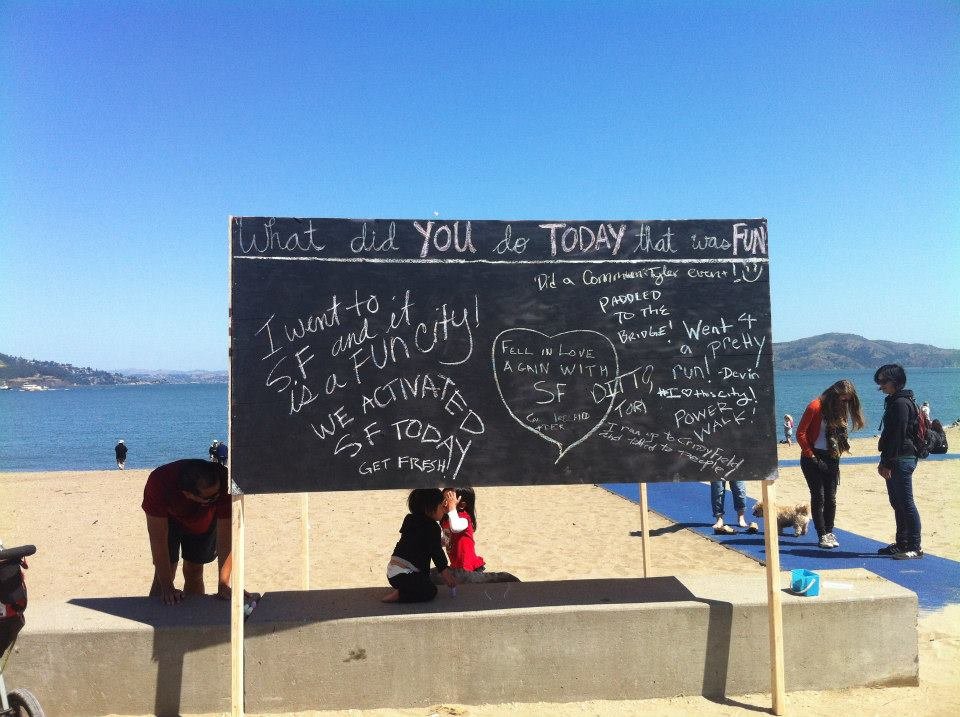 What did YOU do TODAY that was FUN
Did a Commun Tyler event!
PADDLED
TO THE
BRIDGE!
I went to
SF and it
is a FUN City!
WE ACTIVATED
SF TODAY
GET FRESH!
FELL IN LOVE
AGAIN WITH
SF
DITTO
TORI
Went 4
a pretty
run! - Devin
#I♡thiscity!
POWER
WALK!
I ran up to Crissy Field
and talked to people!